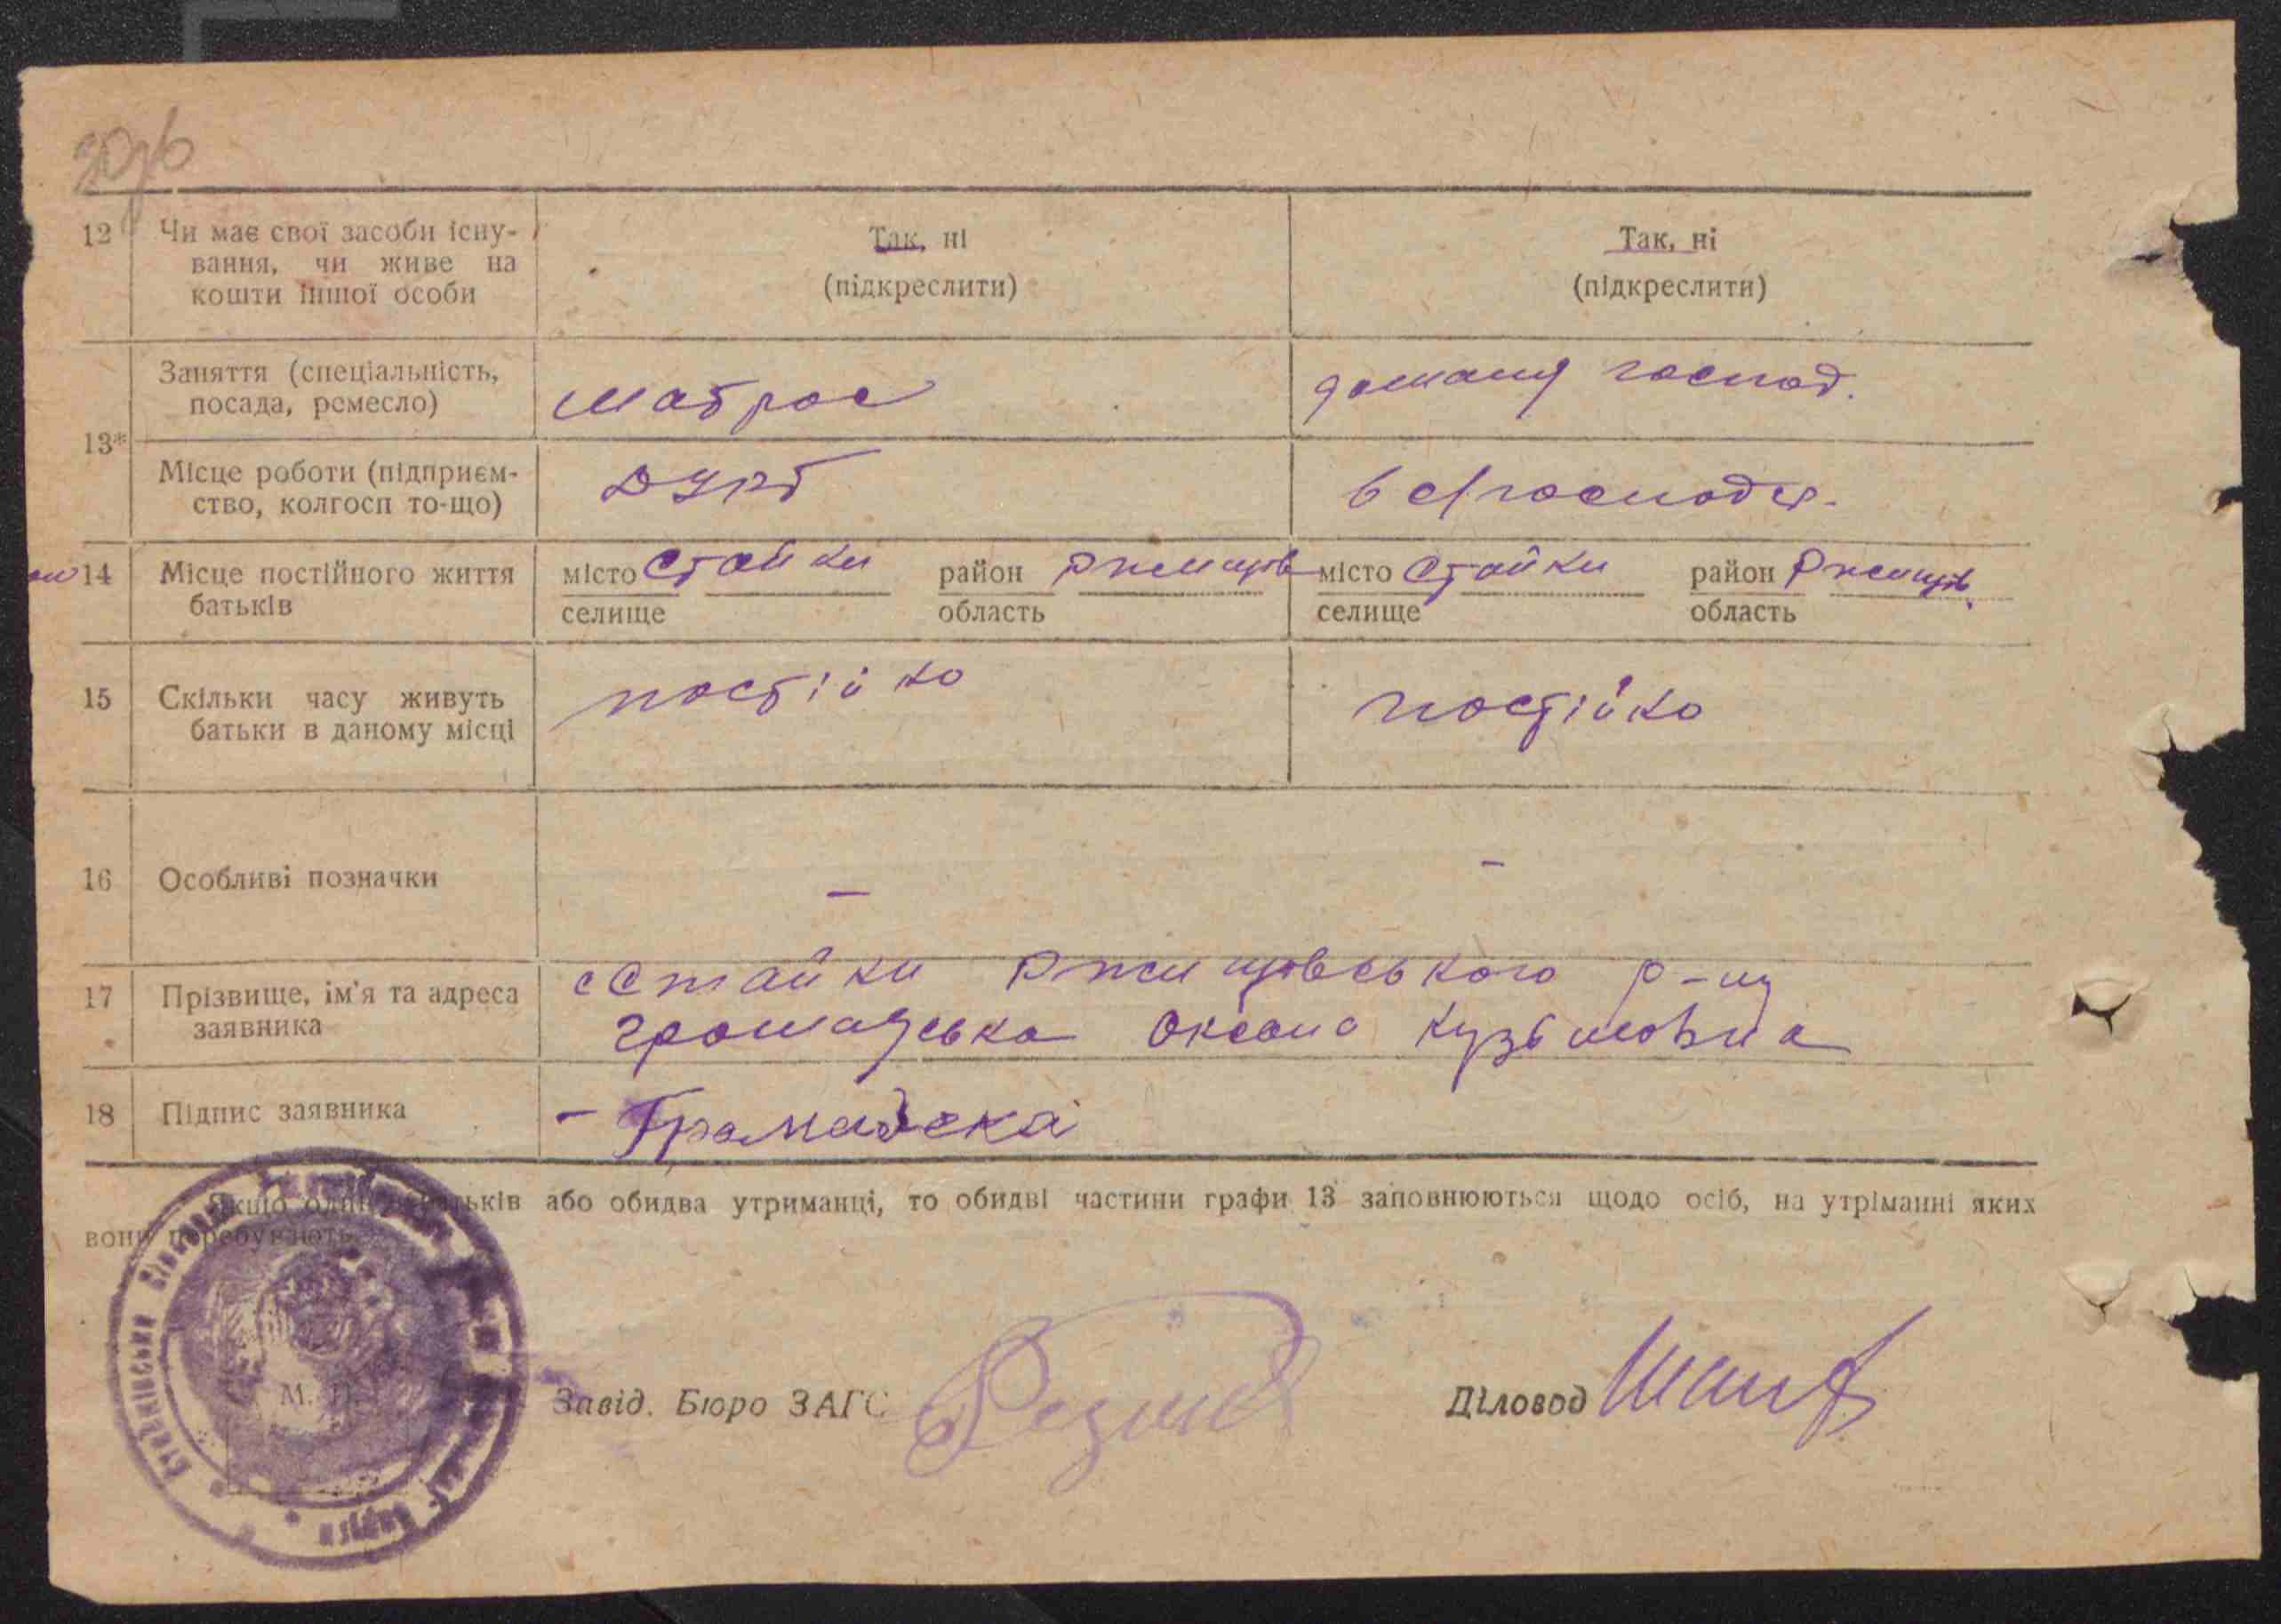 12 Чи має свої засоби існу- Так, ні Так, ні
вання, чи живе на (підкреслити) (підкреслити)
кошти іншої особи
Заняття (спеціальність, матрос домашн господ.
посада, ремесло)
13*
Місце роботи (підприєм- в с/господ
ство, колгосп то-що)
14 Місце постійного життя місто Стайки район Ржищів місто Стайки район Ржищів
батьків селище область селище область
15 Скільки часу живуть постійно постійно
батьки в даному місці
16 Особливі позначки – –
17 Прізвище, ім'я та адреса с Стайки Ржищівського р-ну
заявника Громадська Оксана Кузьмовна
18 Підпис заявника – Грамадска
Якщо один з батьків або обидва утриманці, то обидві частини графи 13 заповнюються щодо осіб, на утріманні яких
вони перебувають.
М. П.
Завід. Бюро ЗАГС Діловод